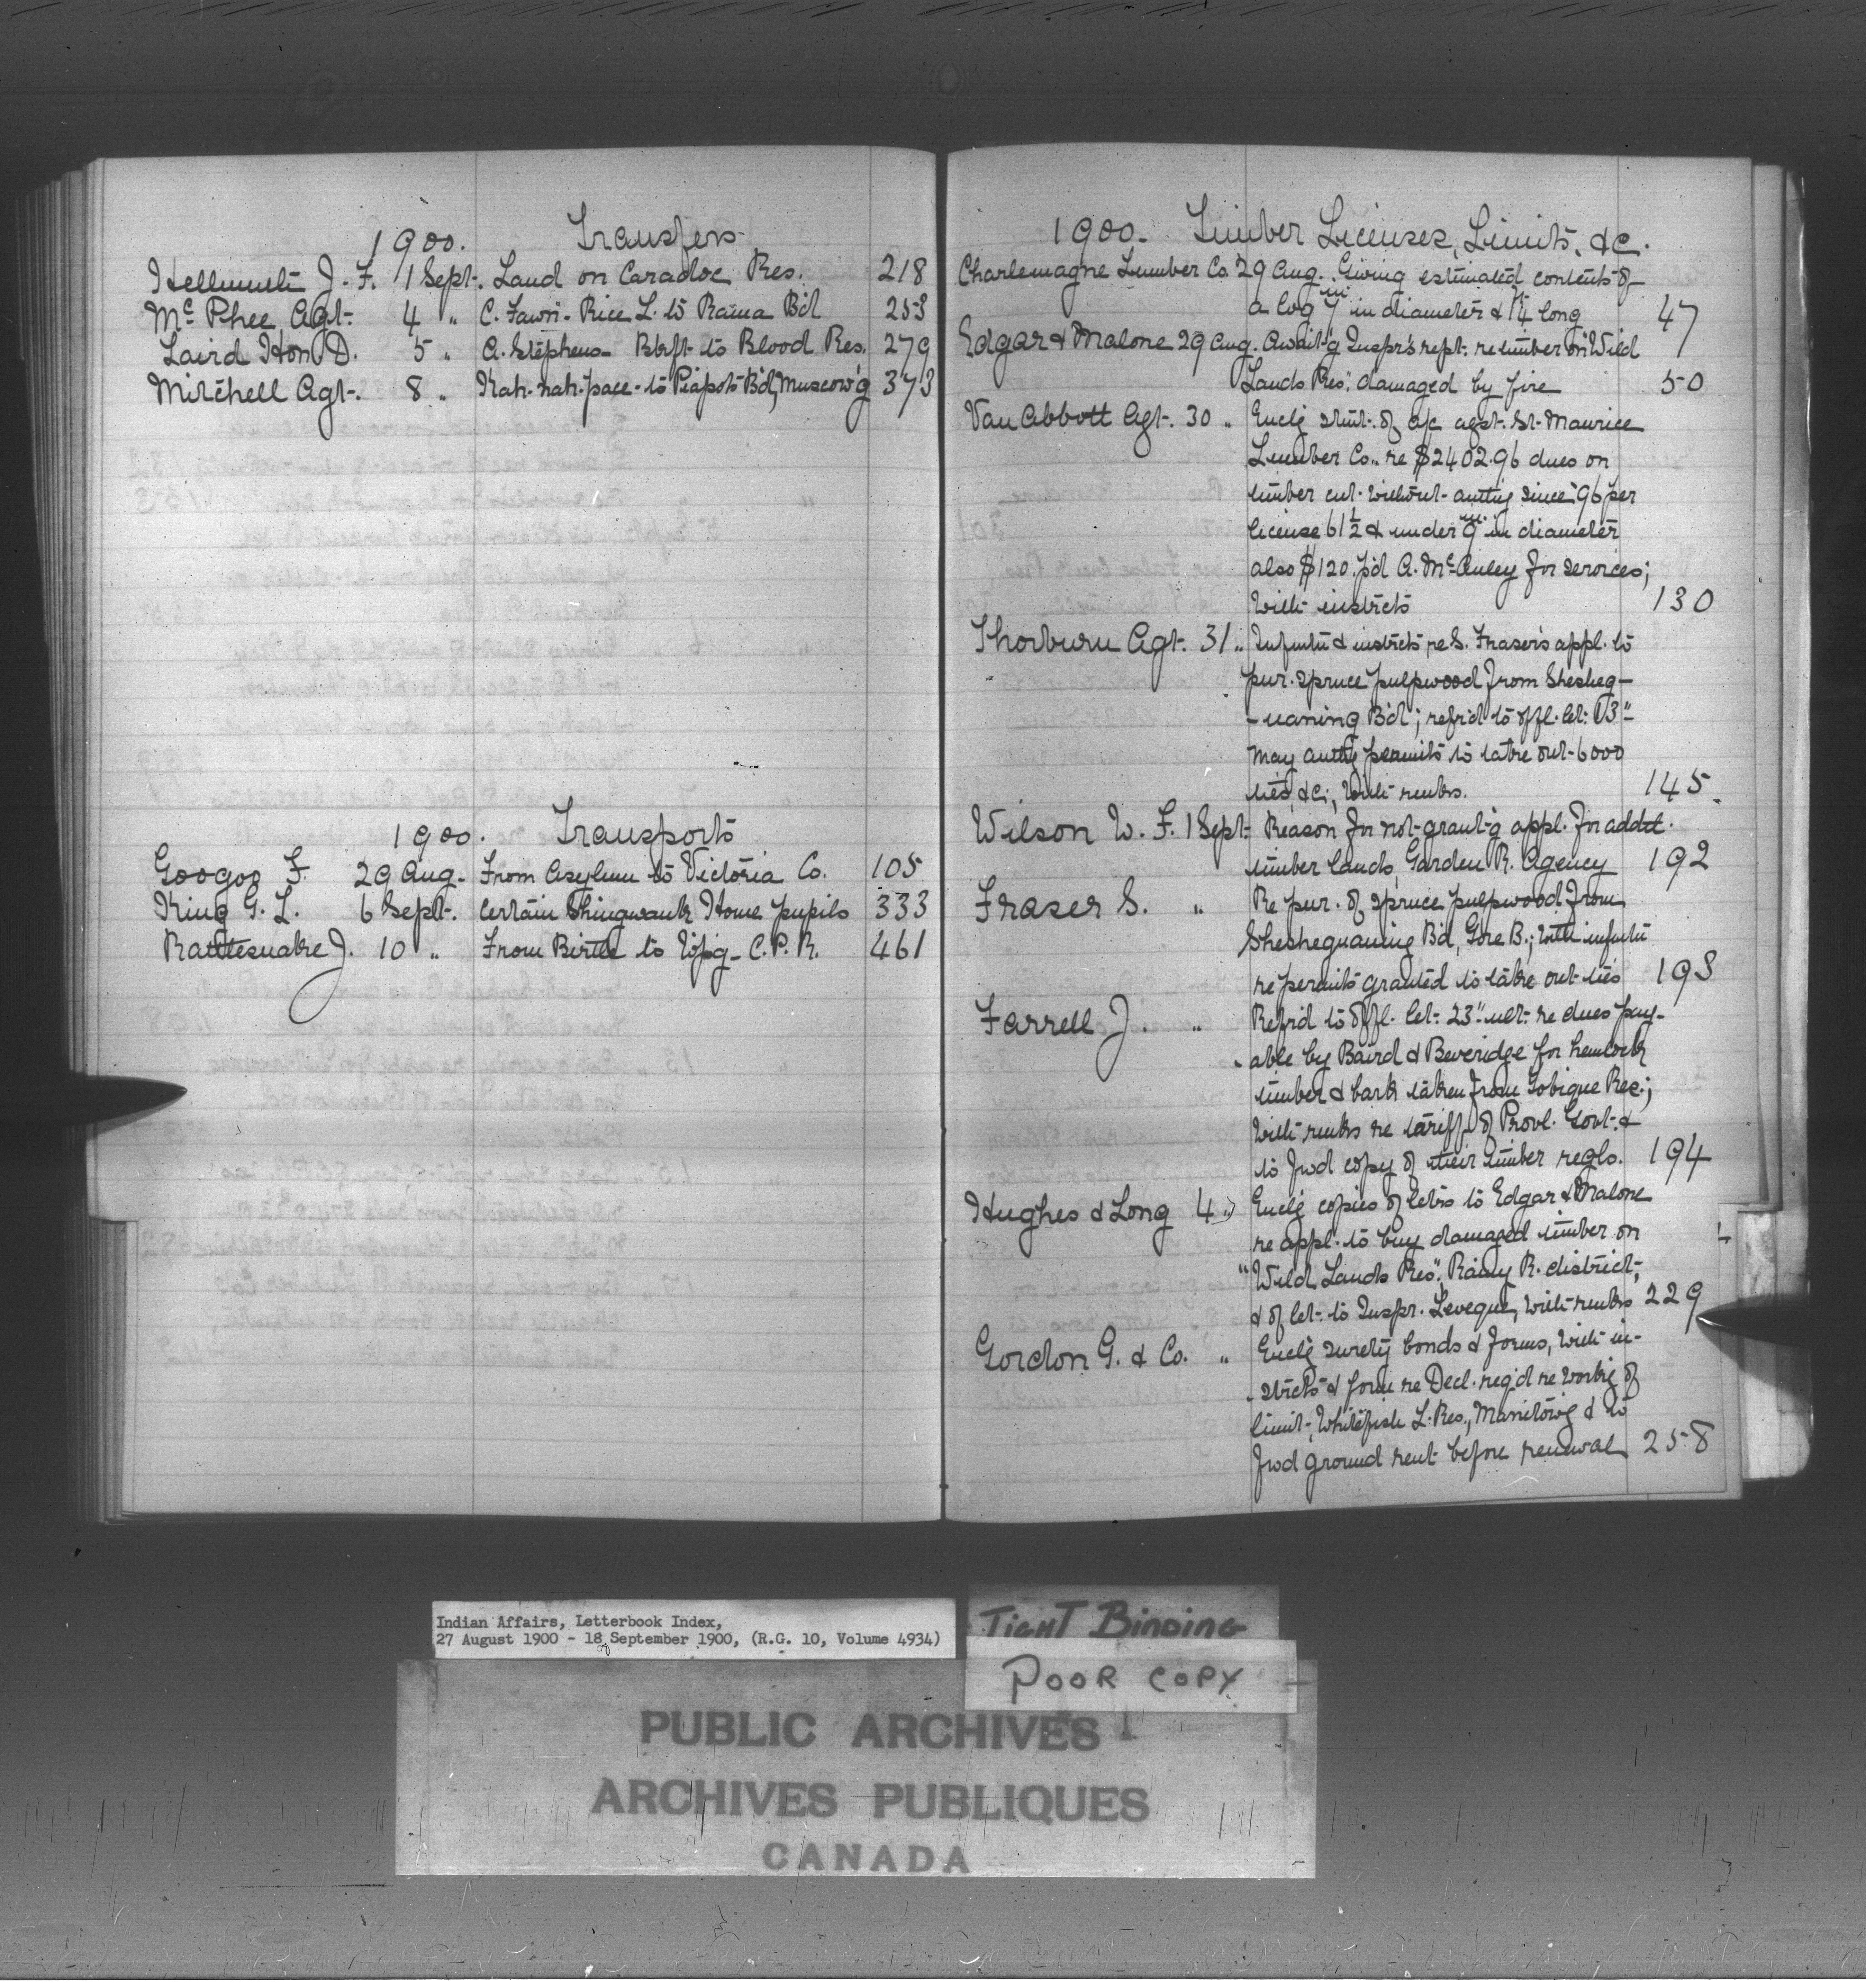 1900. Transfers
Hellmuth J. F. 1 Sept. Land on Caradoc Res. 218
Mc Phee Agt. 4 " C. Fawn - Rice L. to Rama B'd 253
Laird Hon D. 5 " A. Stephens - Btlft to Blood Res. 279
Mitchell Agt. 8 " Kah-nah-pace - to Piapots B'd, Muscow'g 373
1900. Transports
Googoo F. 29 Aug. From Asylum to Victoria Co. 105
King G. L. 6 Sept. Certain Shingwauk Home pupils 333
Rattlesnake J. 10 " From Birtle to W'p'g - C.P.R. 461
1900. Timber Licenses, Limits, &c.
Charlemagne Lumber Co. 29 Aug. Giving estimated contents of
a log 7 in in diameter & 14 long 47
Edgar & Malone 29 Aug. Await'g Inspr's rept. re timber on "Wild
Lands Res", damaged by fire 50
Van Abbott Agt. 30 " Encl'g stmt. of a/c agst. St. Maurice
Lumber Co., re $2402.96 dues on
timber cut without auth'y since '96 per
license 61½ & under 9 in in diameter
also $120. p'd A. McAuley for services;
with instrcts 130
Thorburn Agt. 31 " Infmtn & instrcts re S. Fraser's appl. to
pur. spruce pulpwood from Shesheg-
-uaning B'd; refr'd to offl. let. 13"
May auth'g permits to take out 6000
ties, &c., with rmks. 145
Wilson W. F. 1 Sept. Reason for not grant'g appl. for addtl.
timber lands, Garden R. Agency 192
Fraser S. " Re pur. of spruce pulpwood from
Sheshequaning B'd, Gore B.; with infmtn
re permits granted to take out ties 193
Farrell J. " Refr'd to offl. let. 23" ult. re dues pay-
-able by Baird & Beveridge for hemlock
timber & bark taken from Tobique Res.;
with rmks re tariff of Provl. Govt. &
to fwd copy of their timber regls. 194
Hughes & Long 4 " Encl'g copies of letrs to Edgar & Malone
re appl. to buy damaged timber on
"Wild Lands Res", Rainy R. district,
& of let. to Inspr. Leveque, with rmks 229
Gordon G. & Co. " Encl'g surety bonds & forms, with in-
-strcts & form re Decl. req'd re work'g of
limit, Whitefish L. Res., Manitow'g & to
fwd ground rent before renewal 258
Indian Affairs, Letterbook Index,
27 August 1900 - 18 September 1900, (R.G. 10, Volume 4934)
TIGHT BINDING
POOR COPY
PUBLIC ARCHIVES
ARCHIVES PUBLIQUES
CANADA